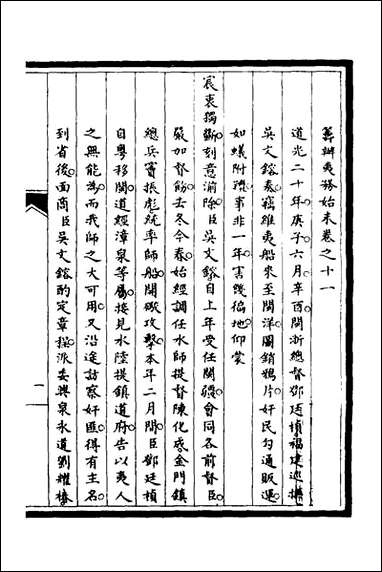 籌辦夷務始末卷之十一
道光二十年庚子六月辛酉閩浙總督鄧廷楨福建巡撫
吳文鎔奏竊維夷船來至閩洋圖銷鴉片奸民勾通販運
如蟻附羶事非一年害幾徧地仰蒙
宸衷獨斷刻意湔除臣吳文鎔自上年受任閩疆會同各前督臣
嚴加督飭去冬今春始經調任水師提督陳化成金門鎮
總兵竇振彪統率師船開礮攻擊本年二月間臣鄧廷楨
自粵移閩道經漳泉等屬接見水陸提鎮道府告以夷人
之無能為而我師之大可用又沿途訪察奸匪得有主名
到省後面商臣吳文鎔酌定章程派委興泉永道劉耀椿
一